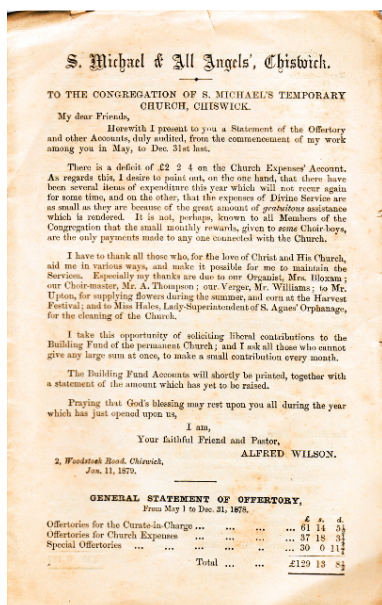 S. Michael & All Angels', Chiswick.
TO THE CONGREGATION OF S. MICHAEL'S TEMPORARY
CHURCH, CHISWICK.
My dear Friends,
Herewith I present to you a Statement of the Offertory
and other Accounts, duly audited, from the commencement of my work
among you in May, to Dec. 31st last.
There is a deficit of £2 2 4 on the Church Expenses' Account.
As regards this, I desire to point out, on the one hand, that there have
been several items of expenditure this year which will not recur again
for some time, and on the other, that the expenses of Divine Service are
as small as they are because of the great amount of gratuitous assistance
which is rendered. It is not, perhaps, known to all Members of the
Congregation that the small monthly rewards, given to some Choir-boys,
are the only payments made to any one connected with the Church.
I have to thank all those who, for the love of Christ and His Church,
aid me in various ways, and make it possible for me to maintain the
Services. Especially my thanks are due to our Organist, Mrs. Bloxam;
our Choir-master, Mr. A. Thompson; our Verger, Mr. Williams; to Mr.
Upton, for supplying flowers during the summer, and corn at the Harvest
Festival; and to Miss Hales, Lady-Superintendent of S. Agnes' Orphanage,
for the cleaning of the Church.
I take this opportunity of soliciting liberal contributions to the
Building Fund of the permanent Church; and I ask all those who cannot
give any large sum at once, to make a small contribution every month.
The Building Fund Accounts will shortly be printed, together with
a statement of the amount which has yet to be raised.
Praying that God's blessing may rest upon you all during the year
which has just opened upon us,
I am,
Your faithful Friend and Pastor,
ALFRED WILSON.
2, Woodstock Road, Chiswick,
Jan. 11, 1879.
GENERAL STATEMENT OF OFFERTORY,
From May 1 to Dec. 31, 1878.
£ s. d.
Offertories for the Curate-in-Charge ... ... ... ... 61 14 5½
Offertories for Church Expenses ... ... ... ... 37 18 3¾
Special Offertories ... ... ... ... .. ... 30 0 11¼
Total ... ... £129 13 8½